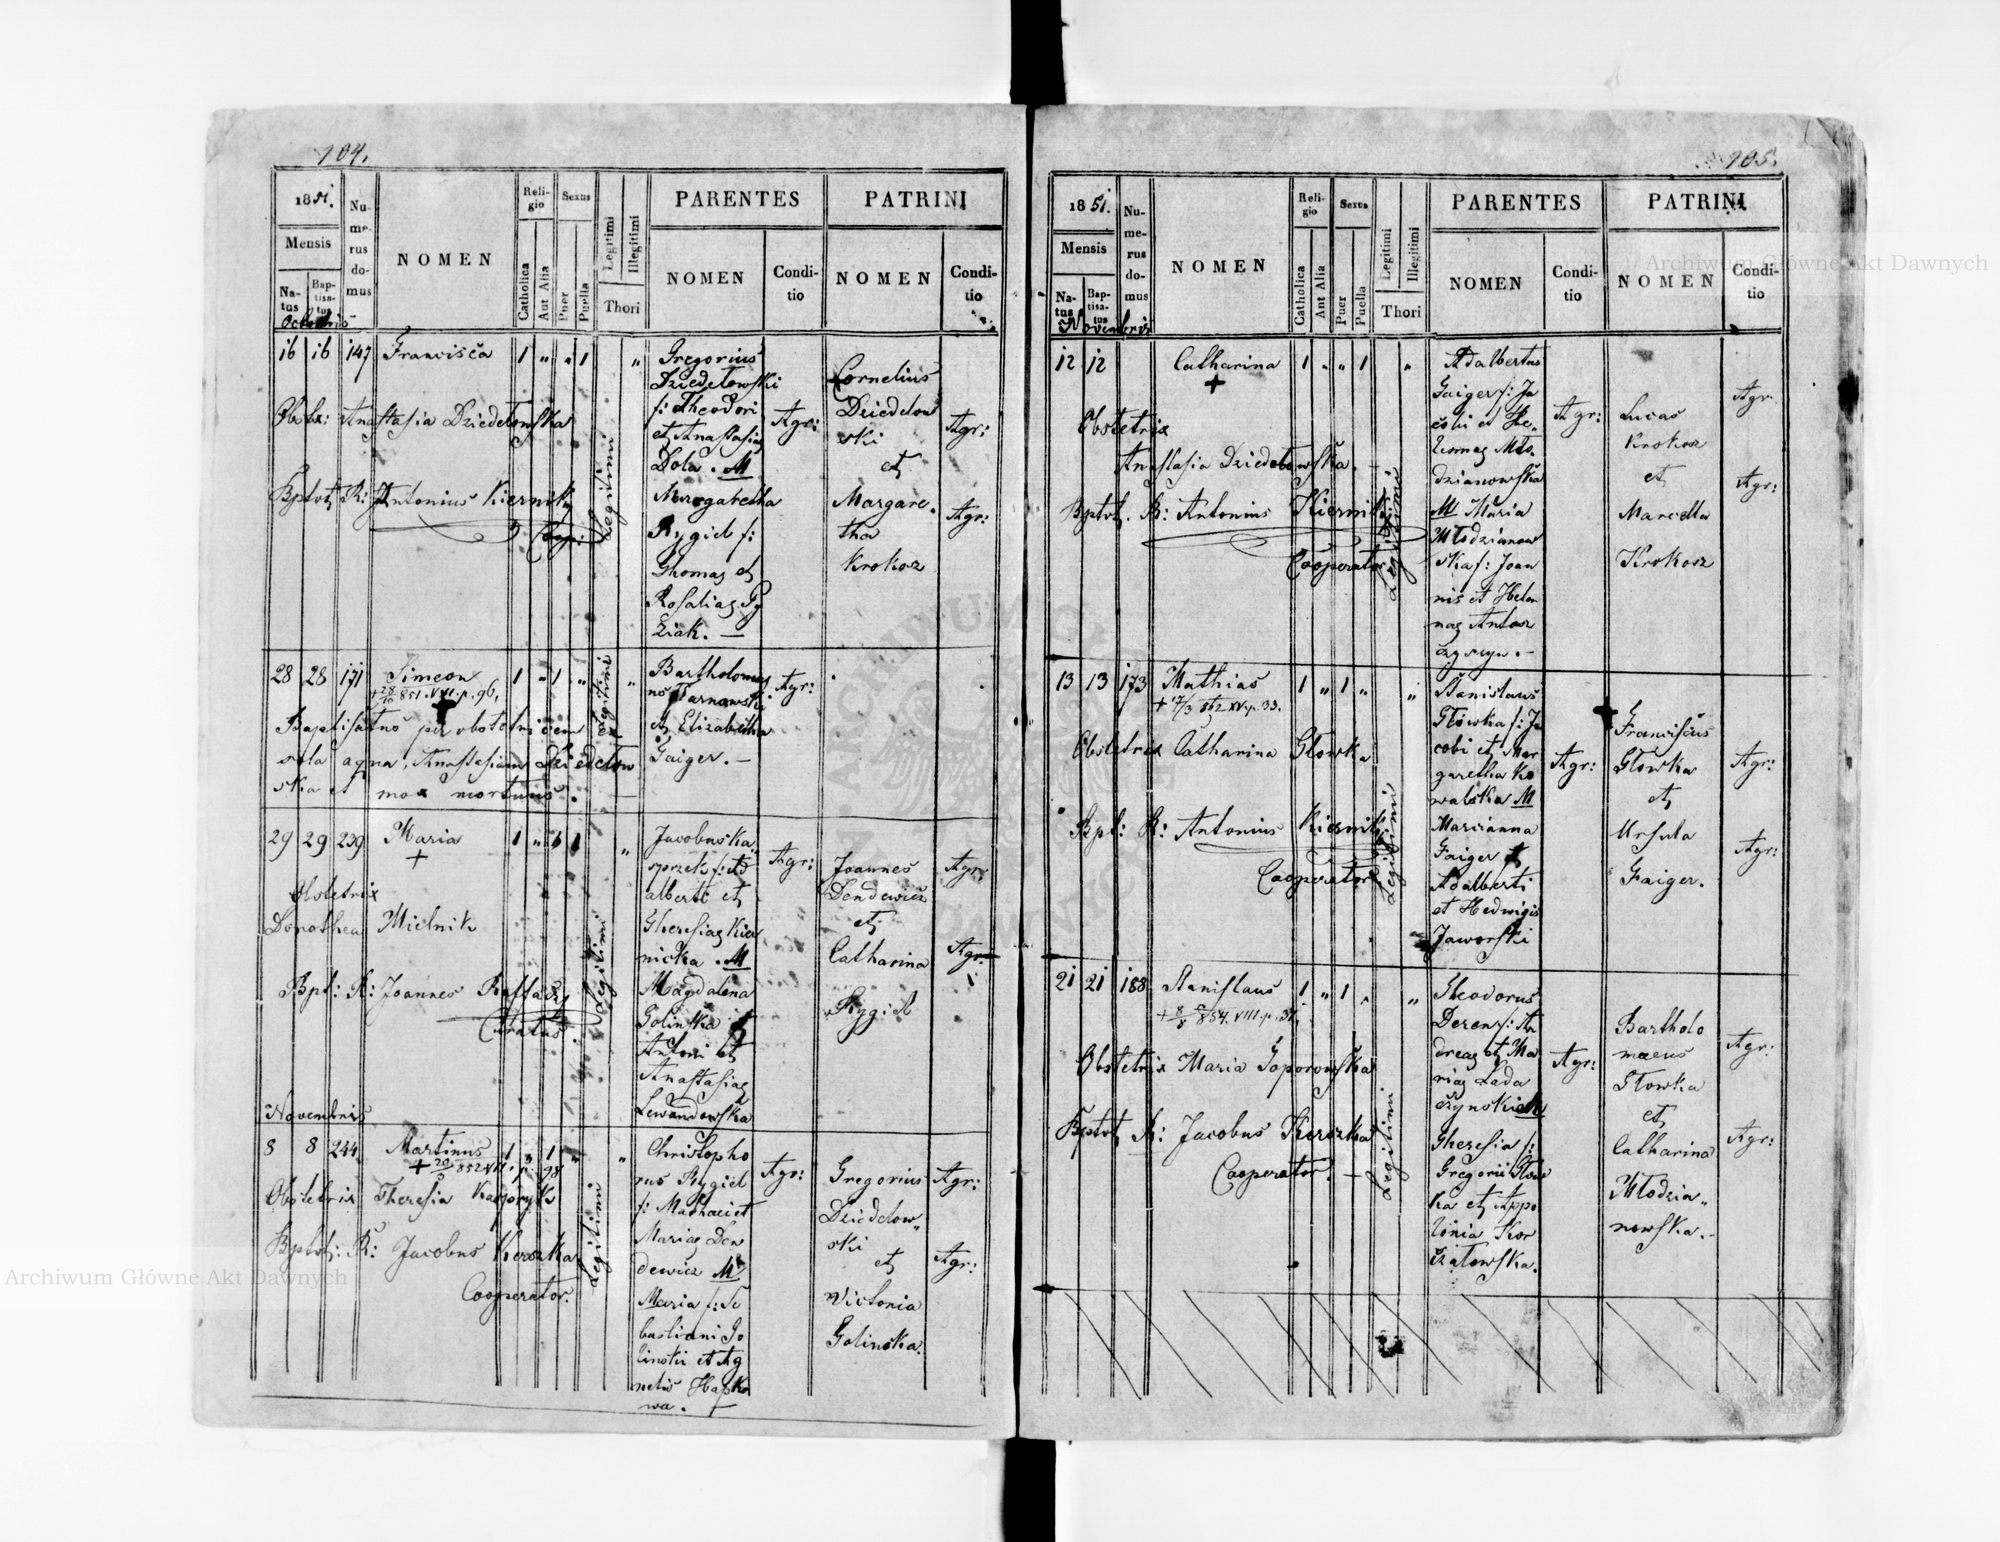 104.
1851.
Mensis
Na-
tus
Bap-
tisa-
tus
Nu-
me-
rus
do-
mus
NOMEN
Reli-
gio
Catholica
Aut Alia
Sexus
Puer
Puella
Legitimi
Illegitimi
Thori
PARENTES
NOMEN
Condi-
tio
PATRINI
NOMEN
Condi-
tio
Octobris
16 16 147 Francisca 1 " " 1 "
Obstx: Anastasia Dziedelowska
Bptvt R: Antonius Kiernik
Coop:
Legitimi
Gregorius
Dziedelowski
f: Theodori
et Anastasiae
Dola. M
Margaretha
Rygiel f:
Thomae et
Rosaliae
Agr:
Cornelius
Dziedelow
ski
et
Margare.
tha
Krokosz
Agr:
Agr:
28 28 171 Simeon 1 " 1 " "
+ 28/10 851. VIII. p. 96.
Baptisatus per obstetricem ex
sola aqua, Anastasiam Dziedelow
ska et mox mortuus.
Legitimi
Bartholomae
us Tarnowski
et Elizabetha
Gaiger. —
Agr:
29 29 239 Maria 1 " " 1 "
+
Obstetrix
Dorothea Mielnik
Bpt: R: Joannes
Curatus.
Legitimi
Jacobus Ka-
sprzek f: Ad
alberti et
Theresiae Kier
nicka. M
Magdalena
Golinska f
Antoni et
Anastasiae
Lewandowska
Agr:
Joannes
Dendewicz
et
Catharina
Rygiel
Agr:
Agr:
Novembris
8 8 244 Martinus 1 " 1 " "
+ 852 VIII. p. 98
Obstetrix Theresia
Bptvt: R: Jacobus Keroszka
Cooperator.
Legitimi
Christopho
rus Rygiel
f: Mathaei et
Mariae Den
dewicz M
Maria f: Se
bastiani Go
linski et Ag
netis Hapko
wa. —
Agr:
Gregorius
Dziedelow"
ski
et
Victoria
Golinska.
Agr:
Agr:
105.
1851.
Mensis
Na-
tus
Bap-
tisa-
tus
Nu-
me-
rus
do-
mus
NOMEN
Reli-
gio
Catholica
Aut Alia
Sexus
Puer
Puella
Legitimi
Illegitimi
Thori
PARENTES
NOMEN
Condi-
tio
PATRINI
NOMEN
Condi-
tio
Novembris
12 12 Catharina 1 " " 1 "
+
Obstetrix
Anastasia Dziedelowska. —
Bptvt. R: Antonius Kiernik
Cooperator
Legitimi
Adalbertus
Gaiger f: Ja
M Maria
Młodzianow
ska f: Joan
nis et Hele
nae Antosz
czyszyn. —
Agr:
Lucas
Krokosz
et
Marcella
Krokosz
Agr.
Agr:
13 13 173 Mathias 1 " 1 " "
Obstetrix Catharina Głowka
Bpt: R: Antonius Kiernik
Cooperator
Legitimi
Stanislaus
Głowka f: Ja
cobi et Mar
garetha Ko
walska M
Marianna
Gaiger f
Adalberti
et Hedwigis
Jaworski
Agr:
Franciscus
Głowka
et
Ursula
Gaiger.
Agr:
Agr:
21 21 188 Stanislaus 1 " 1 " "
+ 854. VIII. p. 37.
Obstetrix Maria Toporowska
Bptvt R: Jacobus Keroszka
Cooperator. —
Legitimi
Theodorus
Deren f: An
dreae et Ma
riae Lada
czynski M
Theresia f:
Gregorii Głow
ka et Appo
lonia Kor
czatowska.
Agr:
Bartholo
maeus
Głowka
et
Catharina
Młodzia"
nowska. —
Agr:
Agr:
Archiwum Główne Akt Dawnych
Archiwum Główne Akt Dawnych